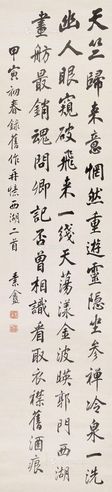 天竺歸來意惘然重遊靈隱坐參禪冷泉一洗
幽人眼窺破飛來一線天蕩漾金波暎耶門西湖
畫舫最銷魂問卿記否曾相識看取衣襟舊酒痕
甲寅初春錄舊作再憶西湖二首 素盦